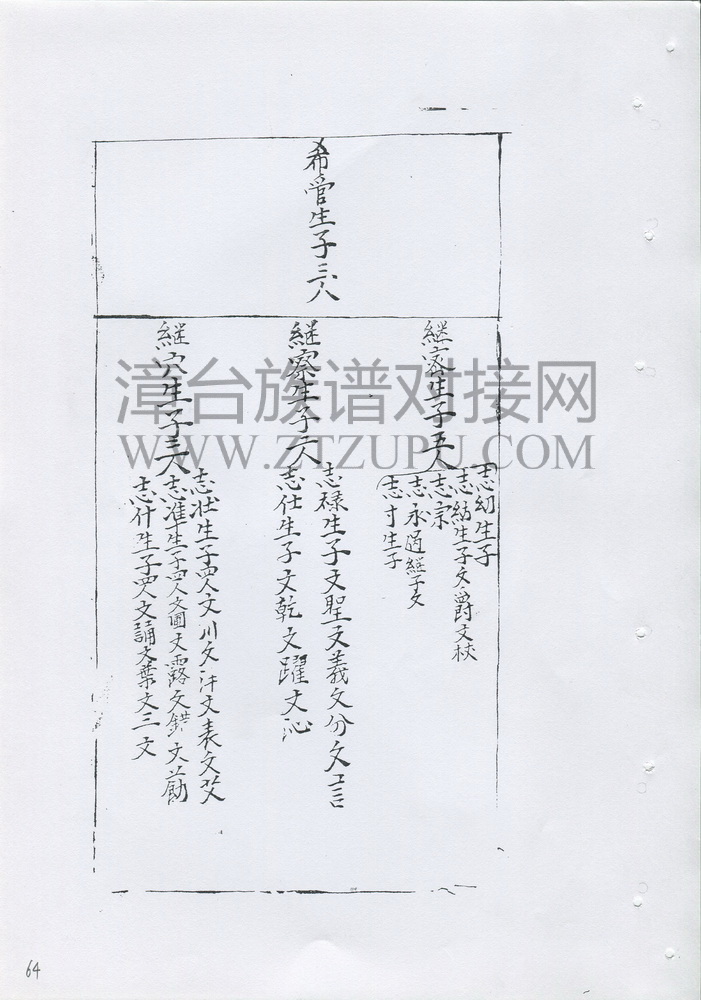 希管生子三人
継密生子五人
志幼生子
志紡生子文爵文枝
志宗
志永過継子文
志寸生子
継察生子二人
志禄生子文聖文義文分文言
志仕生子文乾文躍文沁
継穴生子三人
志壮生子四人文川文汗文表文艾
志準生子四人文圃文露文錯文勛
志什生子四人文誦文葉文三文
漳台族谱对接网
WWW.ZTZUPU.COM
64